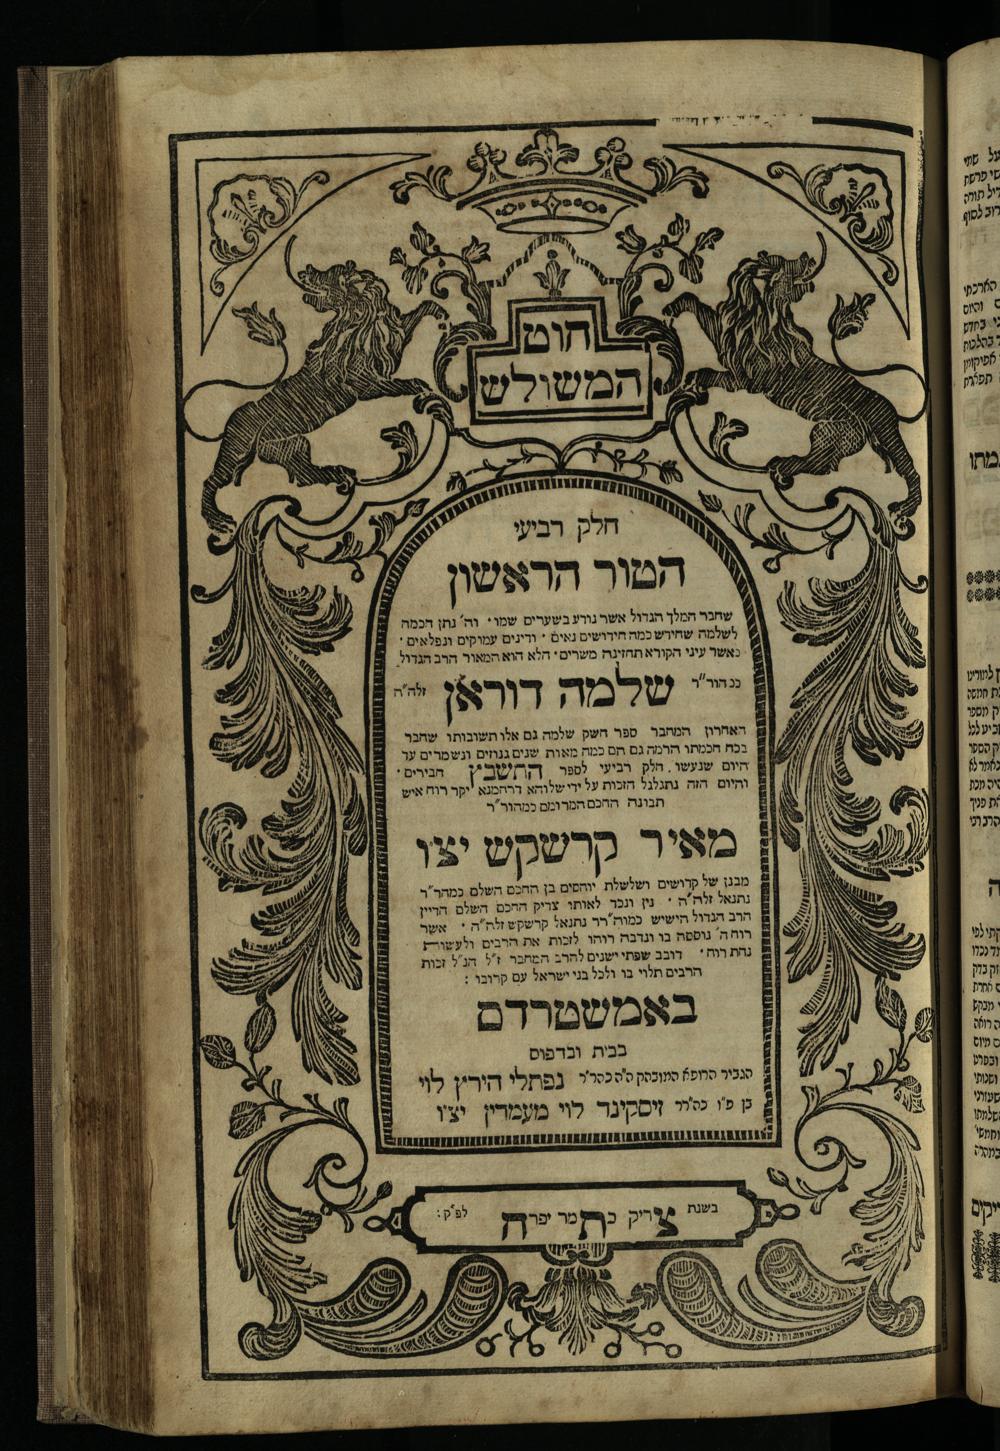 חוט
המשולש
חלק רביעי
הטור הראשון
שחבר המלך הגדול אשר נודע בשערים שמו · וה' נתן חכמה
לשלמה שחידש כמה חידושים נאים · ודינים עמוקים ונפלאים ·
כאשר עיני הקורא תחזינה משרים · הלא הוא המאור הרב הגדול
ככהור״ר שלמה דוראן זלה״ה
האחרון המחבר ספר חשק שלמה גם אלו תשובותיו שחבר
בכח חכמתו הרמה גם הם כמה מאות שנים גנוזים ונשמרים עד
היום שנעשו . חלק רביעי לספר התשבץ חבירים ·
והיום הזה נתגלגל הזכות על ידי שלוהא דרחמנא יקר רוח איש
תבונה החכם המרומם כמהור״ר
מאיר קרשקש יצ״ו
מבנן של קדושים ושלשלת יוחסים בן החכם השלם כמהר״ר
נתנאל זלה״ה · נין ונכד לאותו צדיק החכם השלם הדיין
הרב הגדול הישיש כמוה״רר נתנאל קרשקש זלה״ה · אשר
רוח ה' נוססה בו ונדבה רוחו לזכות את הרבים ולעשות
נחת רוח · דובב שפתי ישנים להרב המחבר ז״ל הנ״ל זכות
הרבים תלוי בו ולכל בני ישראל עם קרובו :
באמשטרדם
בבית ובדפוס
הגביר הרופא המובהק ה״ה כהר״ר נפתלי הירץ לוי
בן פ״ו כה״רר זיסקינד לוי מעמדין יצ״ו
בשנת צדיק כתמר יפרח לפ״ק :